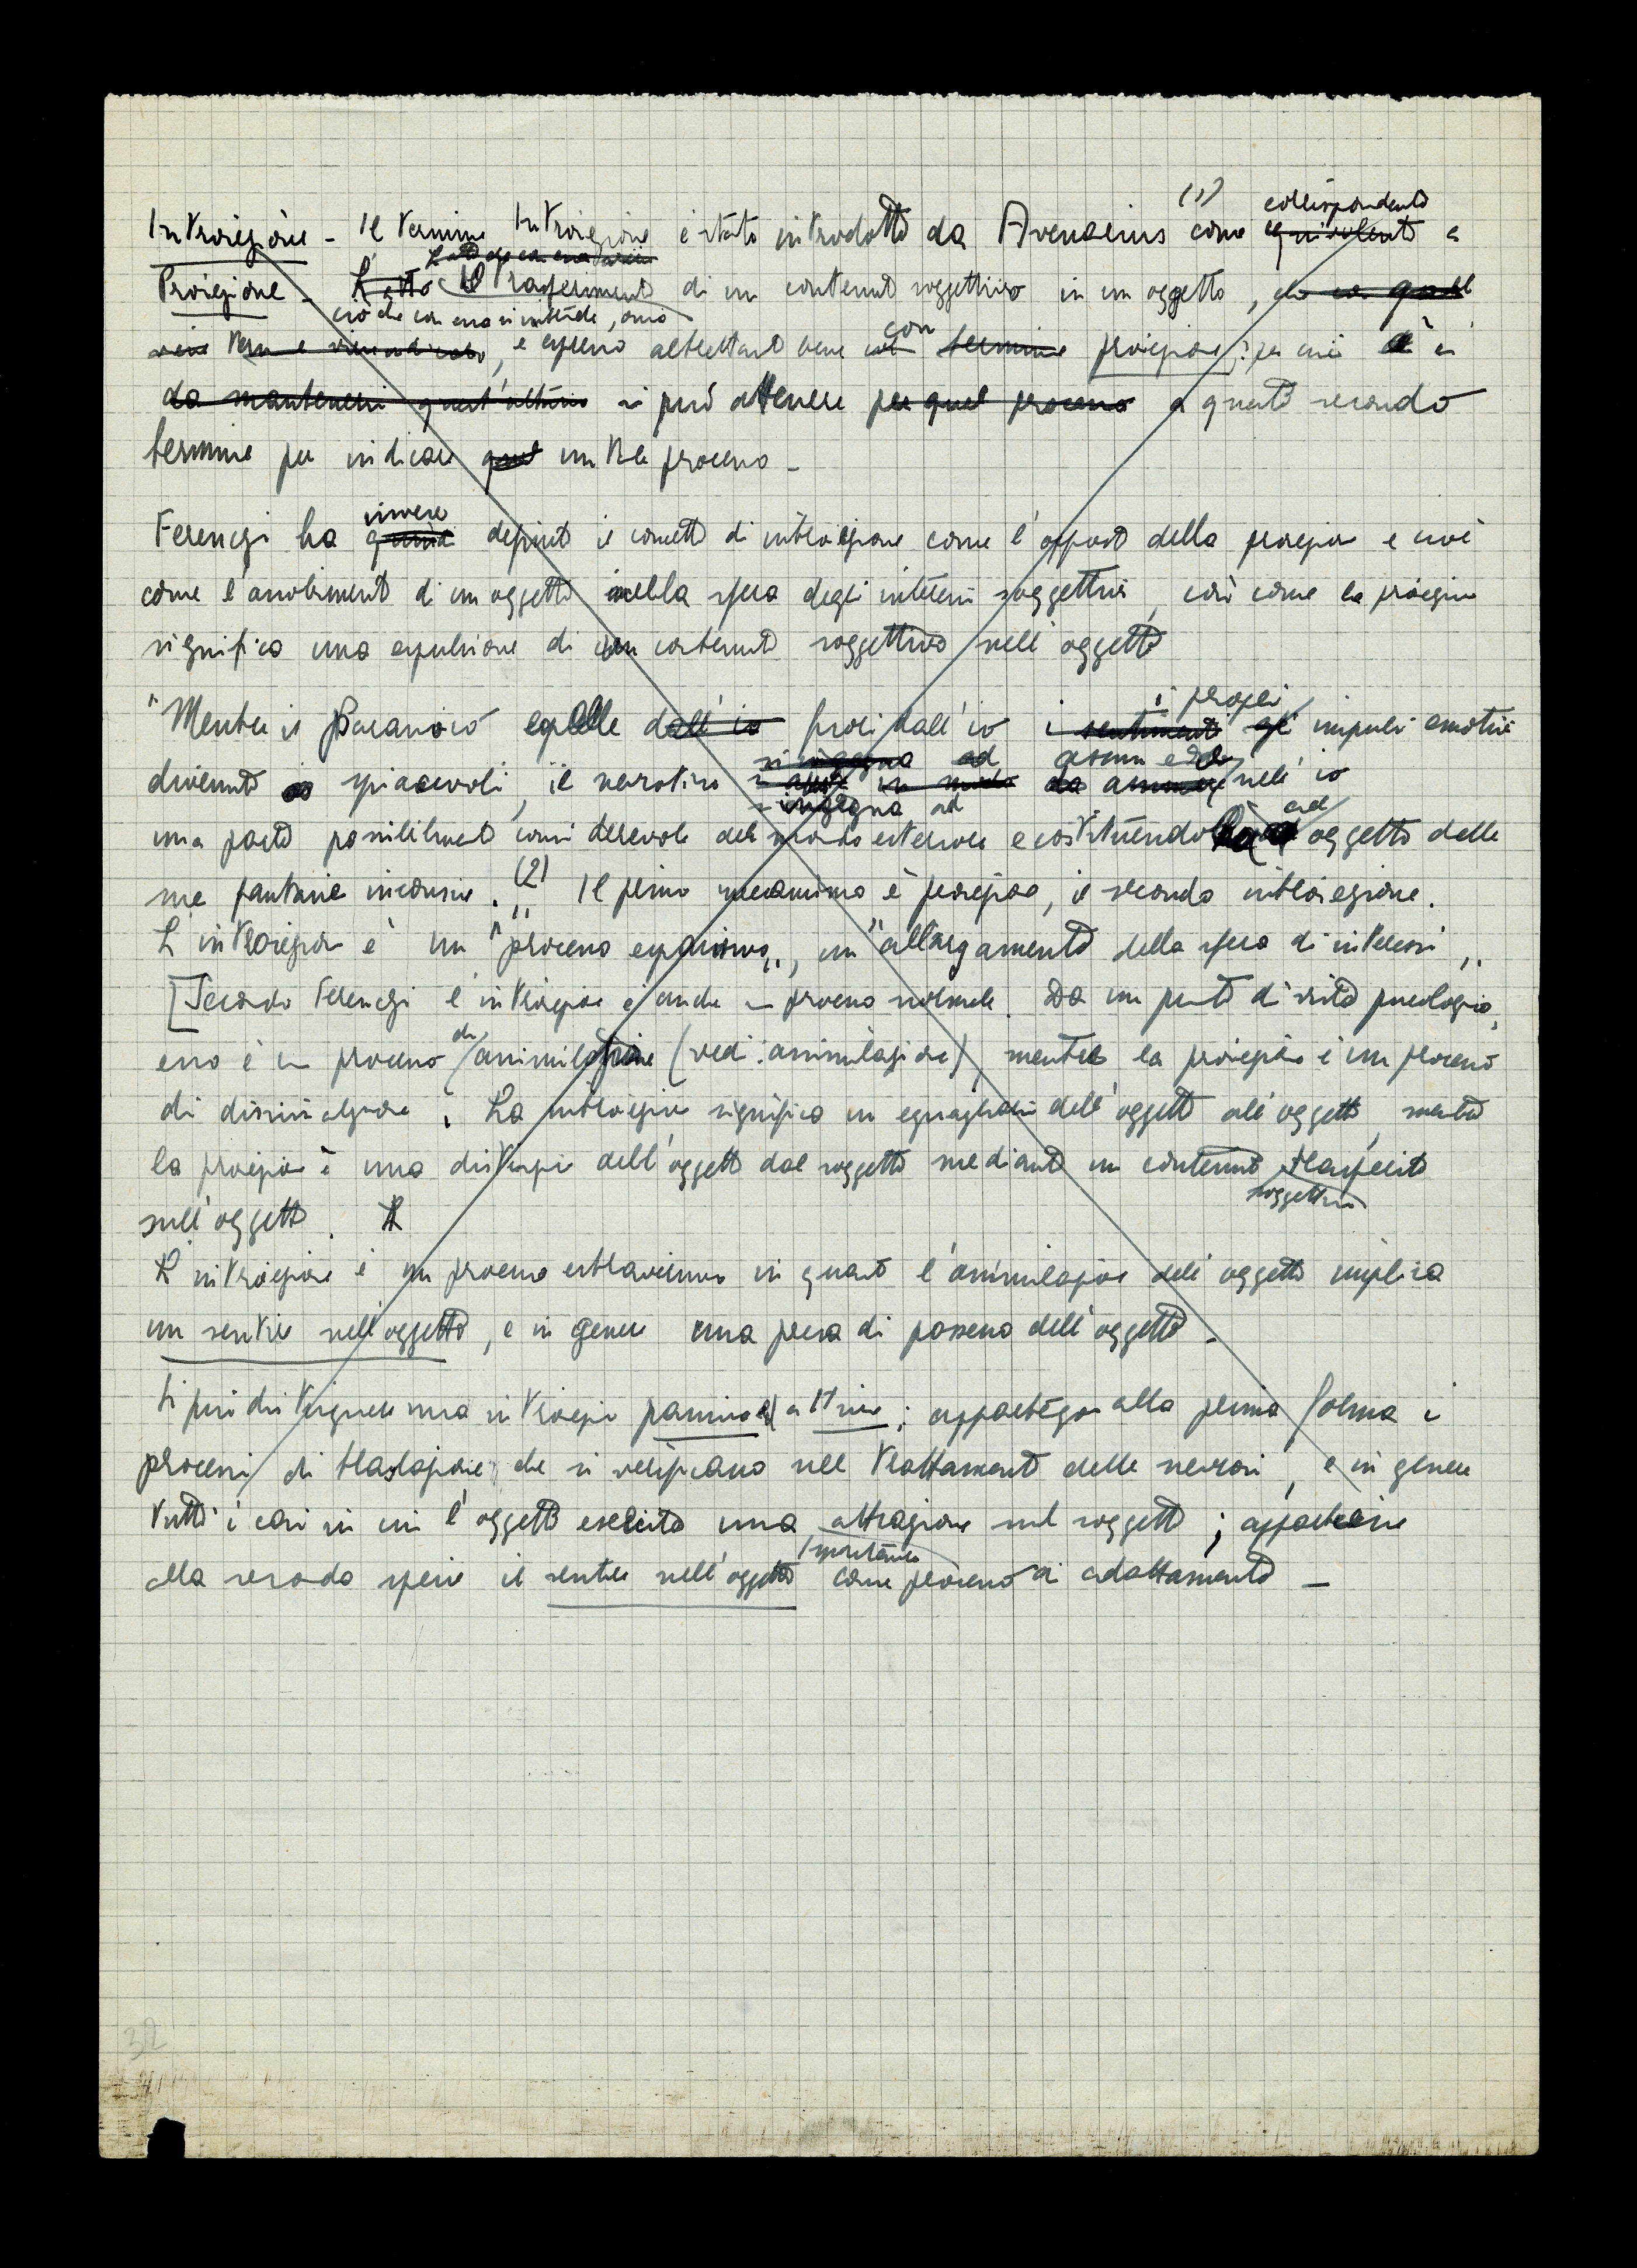 (1) corrispondente
Introiezione - Il termine Introiezione è stato introdotto da Avenarius come equivalente a
Proiezione - L'atto Il trasferimento di un contenuto soggettivo in un oggetto, che con quel
ciò che con essa si intende, ossia
con
è espresso altrettanto bene col termine proiezione; per cui è
da mantenersi quest'ultimo si può attenere per quel processo a questo secondo
termine per indicare quel un tale processo -
invece
Ferenczi ha quindi definito il concetto di introiezione come l'opposto della proiezione e cioè
come l'assorbimento di un oggetto nella sfera degli interessi soggettivi, così come la proiezione
significa una espulsione di un contenuto soggettivo nell'oggetto
i propri
"Mentre il Paranoico espelle dall'io fuori dall'io i sentimenti gli impulsi emotivi
si ingegna ad
divenuti spiacevoli, il nevrotico da nell'io
s'ingegna ad ad
una parte possibilmente considerevole del mondo esteriore e costituendola oggetto delle
sue fantasie inconscie." (2) Il primo meccanismo è proiezione, il secondo introiezione.
L'introiezione è un "processo espansivo", un "allargamento della sfera di interessi".
[Secondo Ferenczi l'introiezione è anche un processo normale. Da un punto di vista psicologico,
di
esso è un processo assimilazione (vedi: assimilazione), mentre la proiezione è un processo
di dissimilazione. La introiezione significa un eguagliarsi dell'oggetto all'oggetto, mentre
la proiezione è una distinzione dell'oggetto dal soggetto mediante un contenuto trasferito
soggettivo
sull'oggetto.
L'introiezione è un processo estraversivo in quanto l'assimilazione dell'oggetto implica
un sentire nell'oggetto, e in genere una presa di possesso dell'oggetto -
Si può distinguere una introiezione passiva e attiva; appartengono alla prima forma i
processi di traslazione che si verificano nel trattamento delle nevrosi, e in genere
tutti i casi in cui l'oggetto esercita una attrazione sul soggetto; appartiene
alla seconda specie il sentire nell'oggetto come processo di adattamento -
32